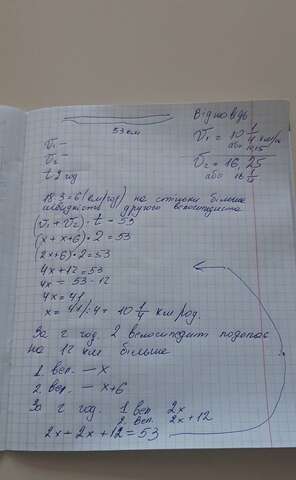 Відповдь
53 км
V₁ = 10 1/4 км/г
або 10,25
V₁ –
V₂ –
t 2 год
V₂ = 16,25
або 16 1/
18:3=6 (км/год) на стільки більша
швидкість другого велосипедиста
(V₁ + V₂) · t = 53
(x + x+6) · 2 = 53
(2x+6) · 2 = 53
4x + 12 = 53
4x = 53 - 12
4x = 41
x = 41/:4 = 10 1/4 км/год.
За 2 год. 2 велосипедит подолає
на 12 км більше
1 вел. — x
2 вел. — x+6
За 2 год. 1 вел 2x
2 вел. 2x+12
2x + 2x + 12 = 53